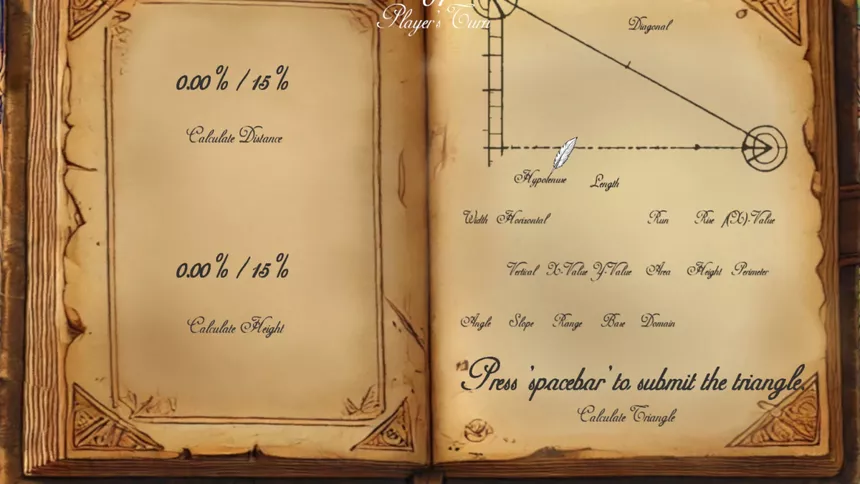 Player's Turn
0.00% / 15%
Calculate Distance
0.00% / 15%
Calculate Height
Diagonal
Hypotenuse Length
Width Horizontal Run Rise f(X)-Value
Vertical X-Value Y-Value Area Height Perimeter
Angle Slope Range Base Domain
Press 'spacebar' to submit the triangle.
Calculate Triangle